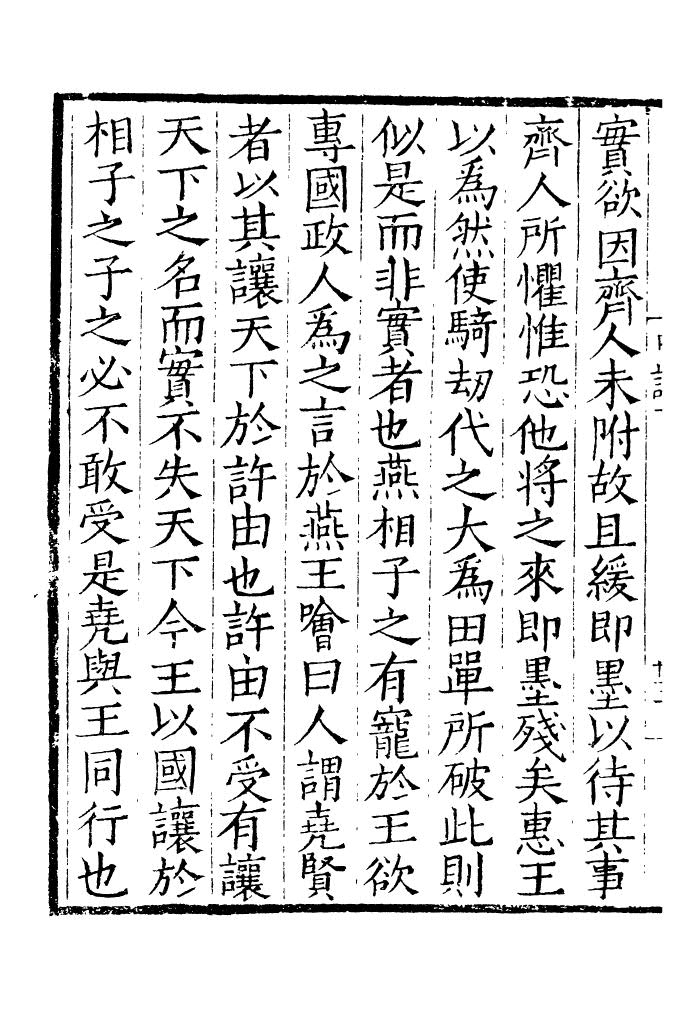 實欲因齊人未附故且緩即墨以待其事
齊人所懼惟恐他將之來即墨殘矣惠王
以爲然使騎劫代之大爲田單所破此則
似是而非實者也燕相子之有寵於王欲
專國政人爲之言於燕王噲曰人謂堯賢
者以其讓天下於許由也許由不受有讓
天下之名而實不失天下今王以國讓於
相子之子之必不敢受是堯與王同行也